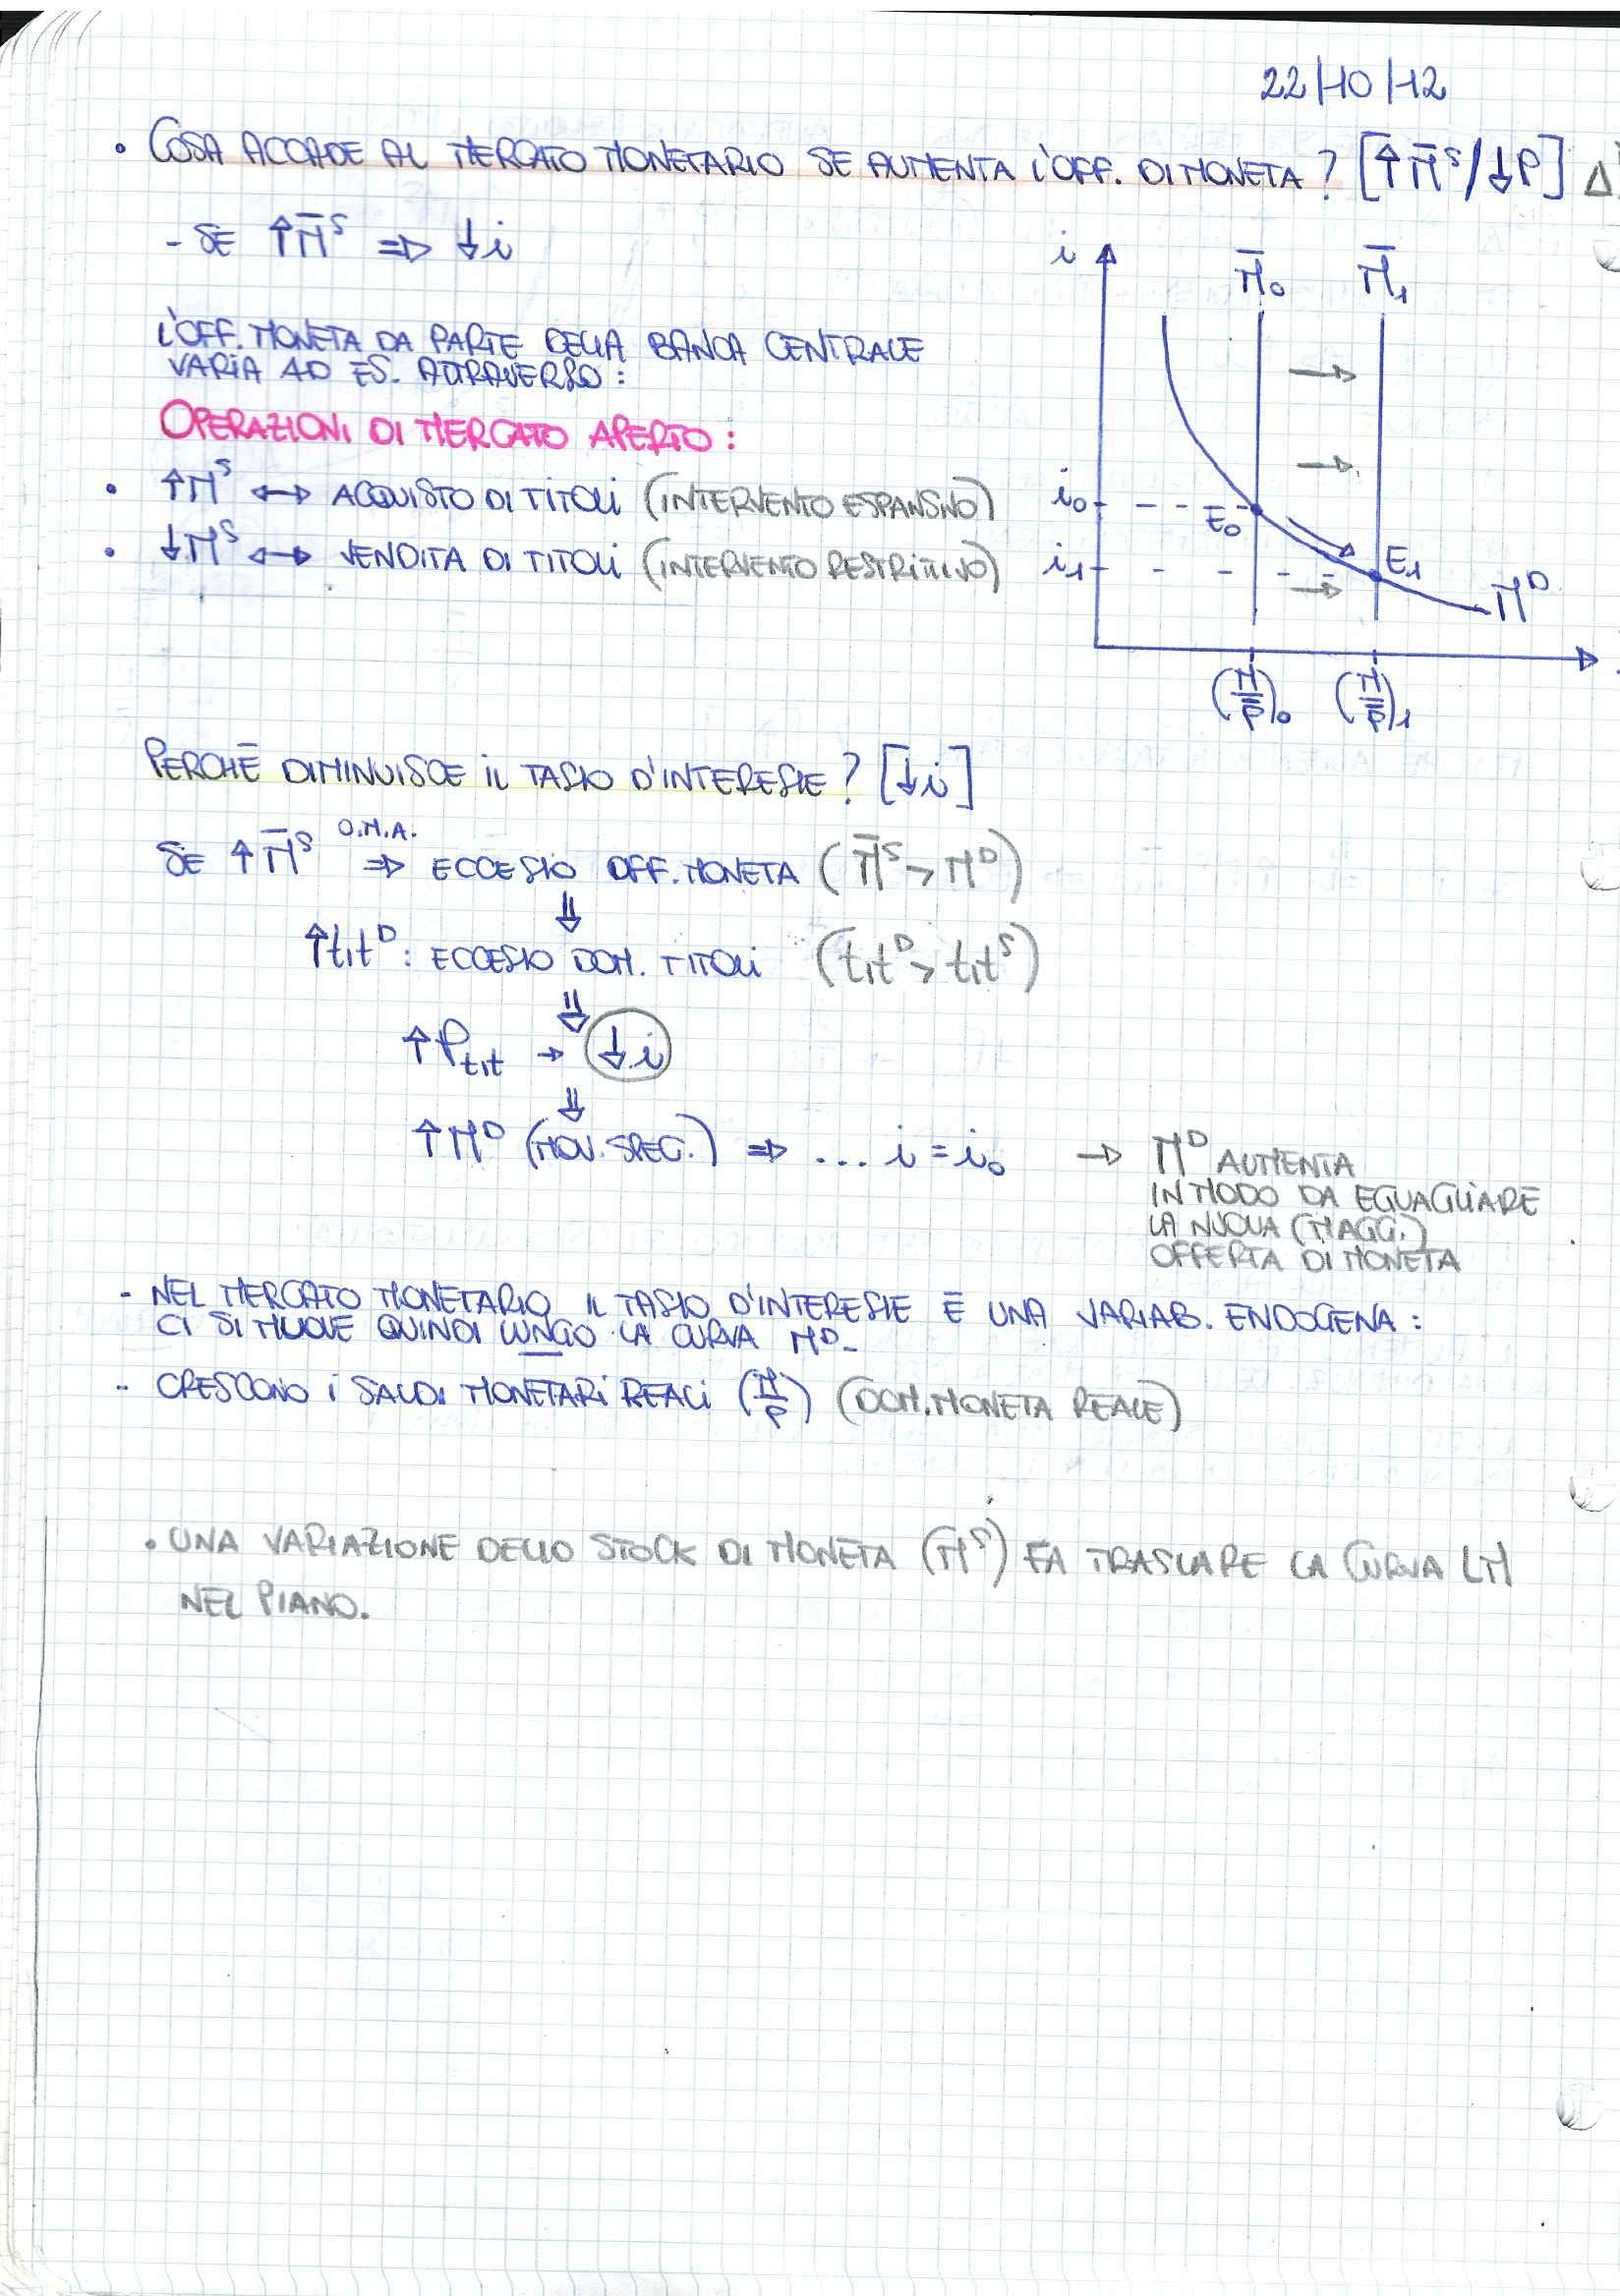 22/10/12
• COSA ACCADE AL MERCATO MONETARIO SE AUMENTA L'OFF. DI MONETA? [↑M̄ˢ/↓P] Δ
- SE ↑M̄ˢ ⇒ ↓i
L'OFF. MONETA DA PARTE DELLA BANCA CENTRALE
VARIA AD ES. ATTRAVERSO:
OPERAZIONI DI MERCATO APERTO:
• ↑Mˢ ↔ ACQUISTO DI TITOLI (INTERVENTO ESPANSIVO)
• ↓Mˢ ↔ VENDITA DI TITOLI (INTERVENTO RESTRITTIVO)
i M̄₀ M̄₁
i₀ E₀
i₁ E₁
Mᴰ
(M/P)₀ (M/P)₁
PERCHÉ DIMINUISCE IL TASSO D'INTERESSE? [↓i]
O.M.A.
SE ↑M̄ˢ ⇒ ECCESSO OFF. MONETA (M̄ˢ > Mᴰ)
⇓
↑titᴰ: ECCESSO DOM. TITOLI (titᴰ > titˢ)
⇓
↑Ptit → ↓i
⇓
↑Mᴰ (MOV. SPEC.) ⇒ ... i = i₀ → Mᴰ AUMENTA
IN MODO DA EGUAGLIARE
LA NUOVA (MAGG.)
OFFERTA DI MONETA
- NEL MERCATO MONETARIO IL TASSO D'INTERESSE È UNA VARIAB. ENDOGENA:
CI SI MUOVE QUINDI LUNGO LA CURVA Mᴰ-
- CRESCONO I SALDI MONETARI REALI (M/P) (DOM. MONETA REALE)
• UNA VARIAZIONE DELLO STOCK DI MONETA (Mˢ) FA TRASLARE LA CURVA LM
NEL PIANO.